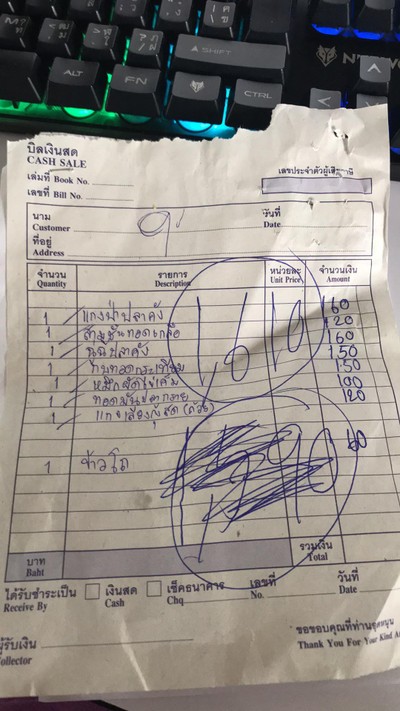 ALT
FN
SHIFT
CTRL
บิลเงินสด
CASH SALE
เล่มที่ Book No.
เลขที่ Bill No.
เลขประจำตัวผู้เสียภาษี
นาม
Customer
9
วันที่
Date
ที่อยู่
Address
จำนวน รายการ หน่วยละ จำนวนเงิน
Quantity Description Unit Price Amount
1 แกงป่าปลาคัง 160
1 สามชั้นทอดเกลือ 120
1 ปลาคัง 160
1 ทอดกระเทียม 150
1 หมึกผัดไข่เค็ม 150
1 ทอดมันปลากราย 100
1 120
1,610
1 ข้าวโถ 60
บาท รวมเงิน
Baht Total
ได้รับชำระเป็น เงินสด เช็คธนาคาร เลขที่ วันที่
Receive By Cash Chq. No. Date
ผู้รับเงิน
Collector
ขอขอบคุณที่ท่านอุดหนุน
Thank You For Your Kind